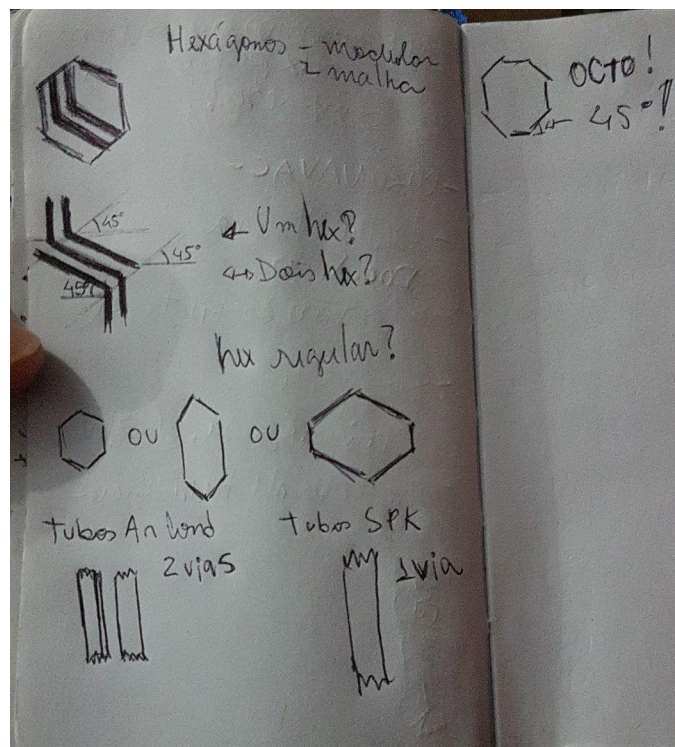 Hexágonos - modular
2 malha
45°
45°
45°
Um hex?
Dois hex?
hex regular?
OU
OU
Tubos Ar Cond
2 vias
Tubos SPK
1 via
OCTO!
45°!